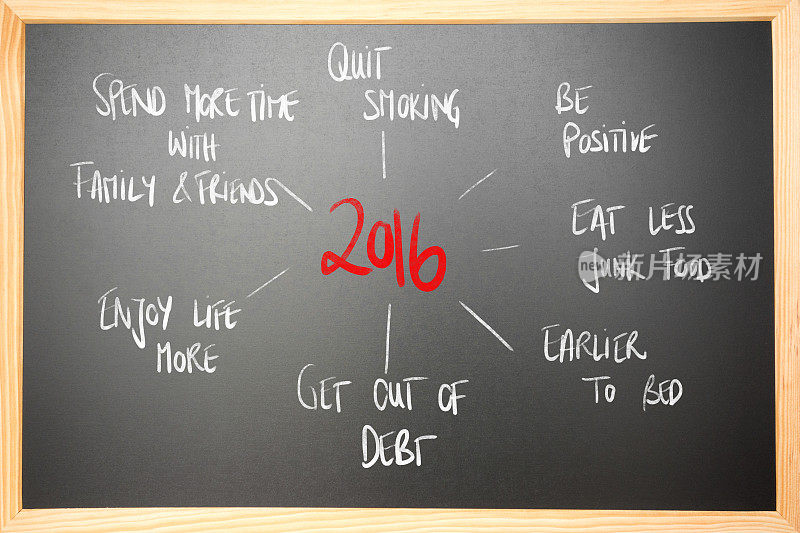 QUIT
SMOKING
SPEND MORE TIME
WITH
FAMILY & FRIENDS
BE
POSITIVE
2016
EAT LESS
JUNK FOOD
new 新片场素材
EARLIER
TO BED
ENJOY LIFE
MORE
GET OUT OF
DEBT